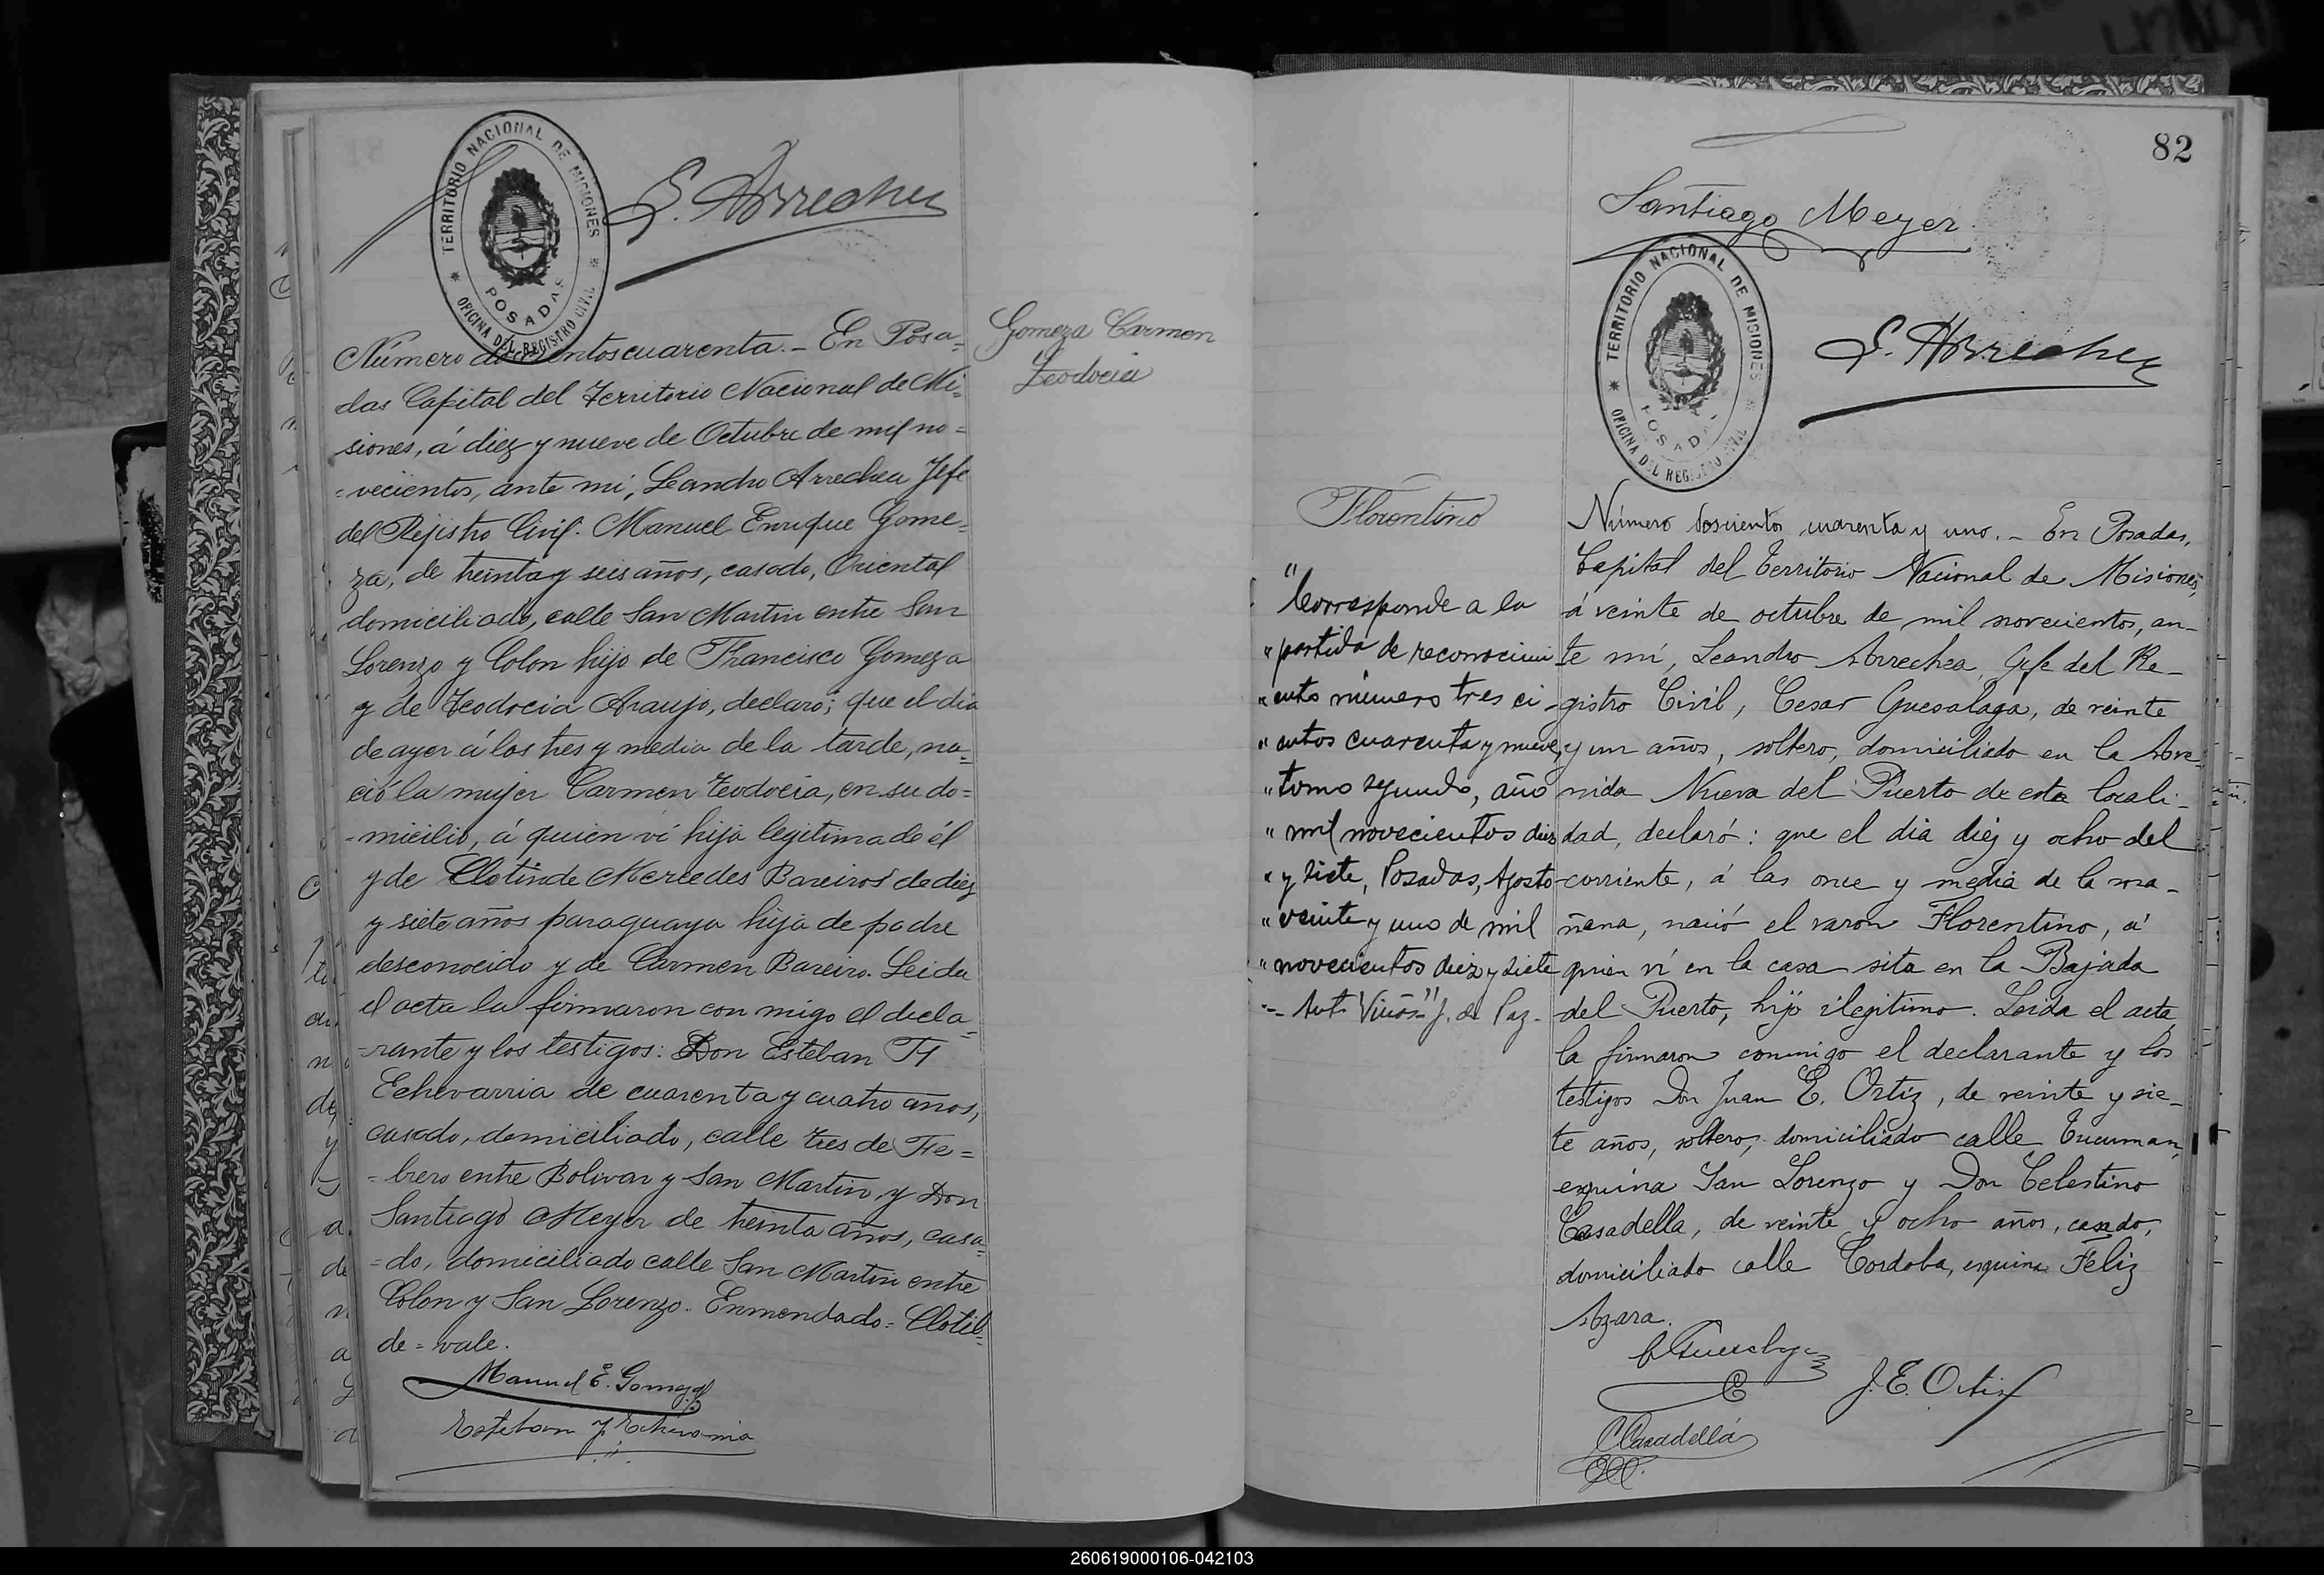 TERRITORIO NACIONAL DE MISIONES
POSADAS
OFICINA DEL REGISTRO CIVIL
L. Arrechea
Gomeza Carmen
Teodocia
Número doscientos cuarenta.- En Posa-
das Capital del Territorio Nacional de Mi-
siones, á diez y nueve de Octubre de mil no=
=vecientos, ante mi, Leandro Arrechea Jefe
del Rejistro Civil. Manuel Enrique Gome-
za, de treinta y seis años, casado, Oriental
domiciliado, calle San Martin entre San
Lorenzo y Colon hijo de Francisco Gomeza
y de Teodocia Araujo, declaró; que el dia
de ayer á las tres y media de la tarde, na=
ció la mujer Carmen Teodocia, en su do=
=micilio, á quien ví hija legitima de él
y de Clotinde Mercedes Bareiros de diez
y siete años paraguaya hija de padre
desconocido y de Carmen Bareiro. Leida
el acta la firmaron con migo el decla=
-rante y los testigos: Don Esteban
Echevarria de cuarenta y cuatro años,
casado, domiciliado, calle tres de Fe=
=brero entre Bolivar y San Martin, y Don
Santiago Meyer de treinta años, casa=
=do, domiciliado calle San Martin entre
Colon y San Lorenzo. Enmendado= Clotil=
de= vale.
Manuel E. Gomeza
Esteban Echevarria
82
Santiago Meyer
TERRITORIO NACIONAL DE MISIONES
POSADAS
OFICINA DEL REGISTRO CIVIL
L. Arrechea
Florentino
"Corresponde a la
"partida de reconocimi
"ento número tres ci-
"entos cuarenta y nueve,
"tomo segundo, año
"mil novecientos diez
"y siete, Posadas, Agosto
"veinte y uno de mil
"novecientos diez y siete
J. de Paz-
Número doscientos cuarenta y uno.- En Posadas,
Capital del Territorio Nacional de Misiones,
á veinte de octubre de mil novecientos, an-
te mí, Leandro Arrechea, Gefe del Re-
gistro Civil, Cesar Guesalaga, de veinte
y un años, soltero, domiciliado en la Ave-
nida Nueva del Puerto de esta locali-
dad, declaró: que el dia diez y ocho del
corriente, á las once y media de la ma-
ñana, nació el varon Florentino, á
quien ví en la casa sita en la Bajada
del Puerto, hijo ilegitimo. Leida el acta
la firmaron conmigo el declarante y los
testigos Don Juan E. Ortiz, de veinte y sie-
te años, soltero, domiciliado calle Tucuman,
esquina San Lorenzo y Don Celestino
Casadella, de veinte y ocho años, casado,
domiciliado calle Cordoba, esquina Feliz
Azara.
C. Guesalaga
J. E. Ortiz
C. Casadellá
260619000106-042103